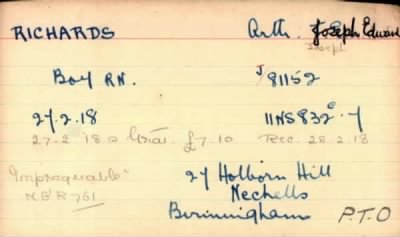 RICHARDS Arth. Joseph Edward
Joseph
Boy RN. J/81152
27.2.18 11NS832
27.2.18 Grat. £7.10 Rec. 28.2.18
"Impregnable"
N.B.R 761
27 Holborn Hill
Nechells
Birmingham
P.T.O